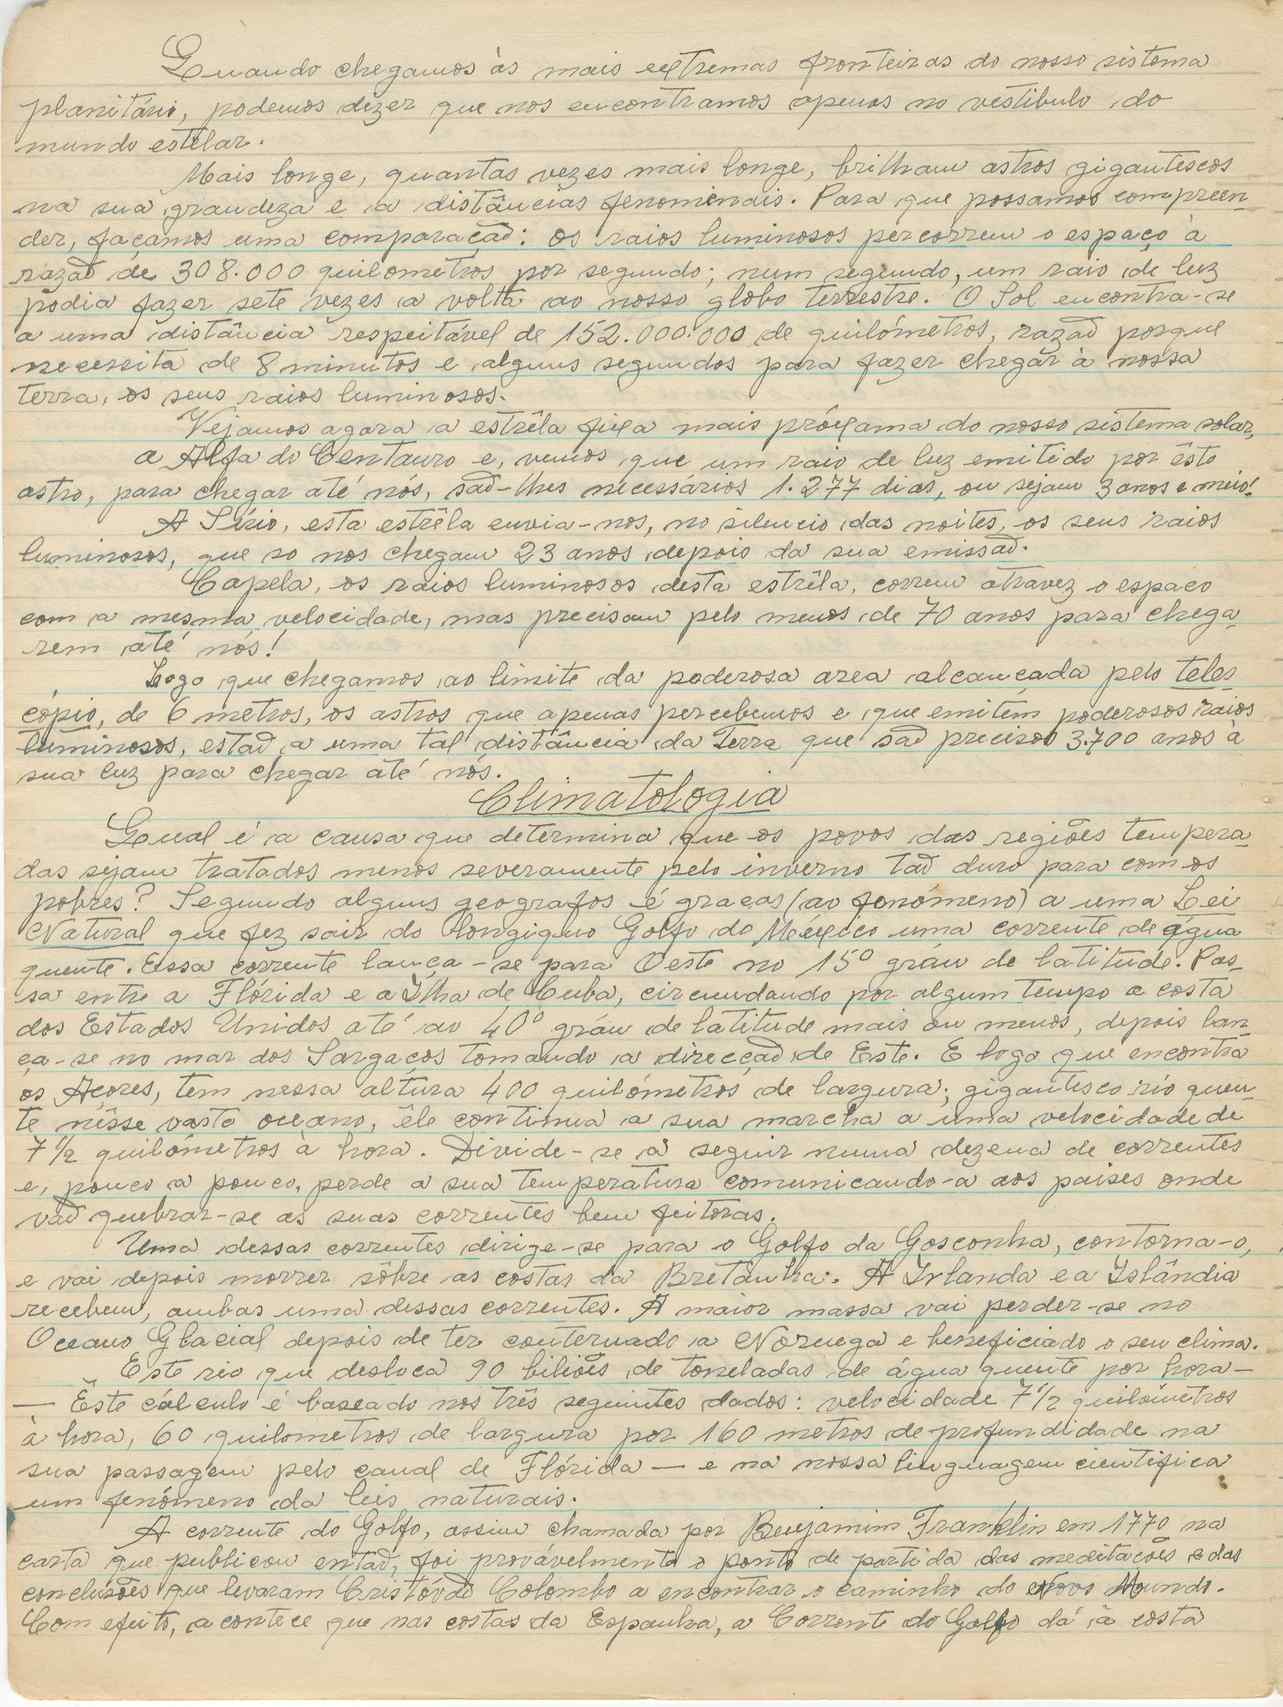 Quando chegamos às mais extremas fronteiras do nosso sistema
planitário, podemos dizer que nos encontramos apenas no vestibulo do
mundo estelar.
Mais longe, quantas vezes mais longe, brilham astros gigantescos
na sua grandeza e a distâncias fenomendis. Para que possamos compreen-
der, façamos uma comparacão: os raios luminosos percorrem o espaço à
razaõ de 308.000 quilometros por segundo; num segundo, um raio de luz
podia fazer sete vezes a volta ao nosso globo terrestre. O Sol encontra-se
a uma distância respeitável de 152.000.000 de quilómetros, razaõ porque
necessita de 8 minutos e alguns segundos para fazer chegar à nossa
terra, os seus raios luminosos.
Vejamos agora a estrêla fixa mais próxama do nosso sistema solar,
a Alfa do Centauro e, vemos que um raio de luz emitido por êste
astro, para chegar até nós, saõ-lhes necessários 1.277 dias, ou sejam 3 anos e meio!
A Sírio, esta estrêla envia-nos, no silencio das noites, os seus raios
luminosos, que so nos chegam 23 anos depois da sua emissaõ.
Capela, os raios luminosos desta estrêla, correm atravez o espaço
com a mesma velocidade, mas precisam pelo menos de 70 anos para chega-
rem até nós!
Logo que chegamos ao limite da poderosa area alcançada pelo teles-
cópio, de 6 metros, os astros que apenas percebemos e que emitem poderosos raios
luminosos, estaõ a uma tal distância da Terra que saõ precisos 3.700 anos à
sua luz para chegar até nós.
Climatologia
Qual é a causa que determina que os povos das regiões tempera-
das sejam tratados menos severamente pelo inverno taõ duro para com os
pobres? Segundo alguns geografos é graças (ao fenómeno) a uma Lei
Natural que fez sair do longiquo Golfo do Méxeco uma corrente de água
quente. Essa corrente lança-se para Oeste no 15º gráu de latitude. Pas-
sa entre a Flórida e a Ilha de Cuba, circundando por algum tempo a costa
dos Estados Unidos até ao 40º gráu de latitude mais ou menos, depois lan-
ça-se no mar dos Sargaços tomando a direcçaõ de Este. E logo que encontra
os Açores, tem nessa altura 400 quilómetros de largura; gigantesco rio quen-
te nêsse vasto oceano, êle continua a sua marcha a uma velocidade de
7 1/2 quilómetros à hora. Divide-se a seguir numa dezena de correntes
e, pouco a pouco, perde a sua temperatura comunicando-a aos paises onde
vaõ quebrar-se as suas correntes bem feitoras.
Uma dessas correntes dirige-se para o Golfo da Gosconha, contorna-o,
e vai depois morrer sôbre as costas da Bretanha. A Irlanda e a Islândia
recebem, ambas uma dessas correntes. A maior massa vai perder-se no
Oceano Glacial depois de ter conternado a Noruega e beneficiado o seu clima.
Este rio que desloca 90 biliões de toneladas de água quente por hora—
— Êste cálculo é baseado nos três seguintes dados: velocidade 7 1/2 quilómetros
à hora, 60 quilometros de largura por 160 metros de profundidade na
sua passagem pelo canal de Flórida — e na nossa linguagem cientifica
um fenómeno da leis naturais.
A corrente do Golfo, assim chamada por Benjamim Franklin em 1770 na
carta que publicou entaõ, foi provávelmente o ponto de partida das meditações e das
conclusões que levaram Cristóvaõ Colombo a encontrar o caminho do Novo Mundo.
Com efeito, acontece que nas costas da Espanha, a Corrente do Golfo dá à costa